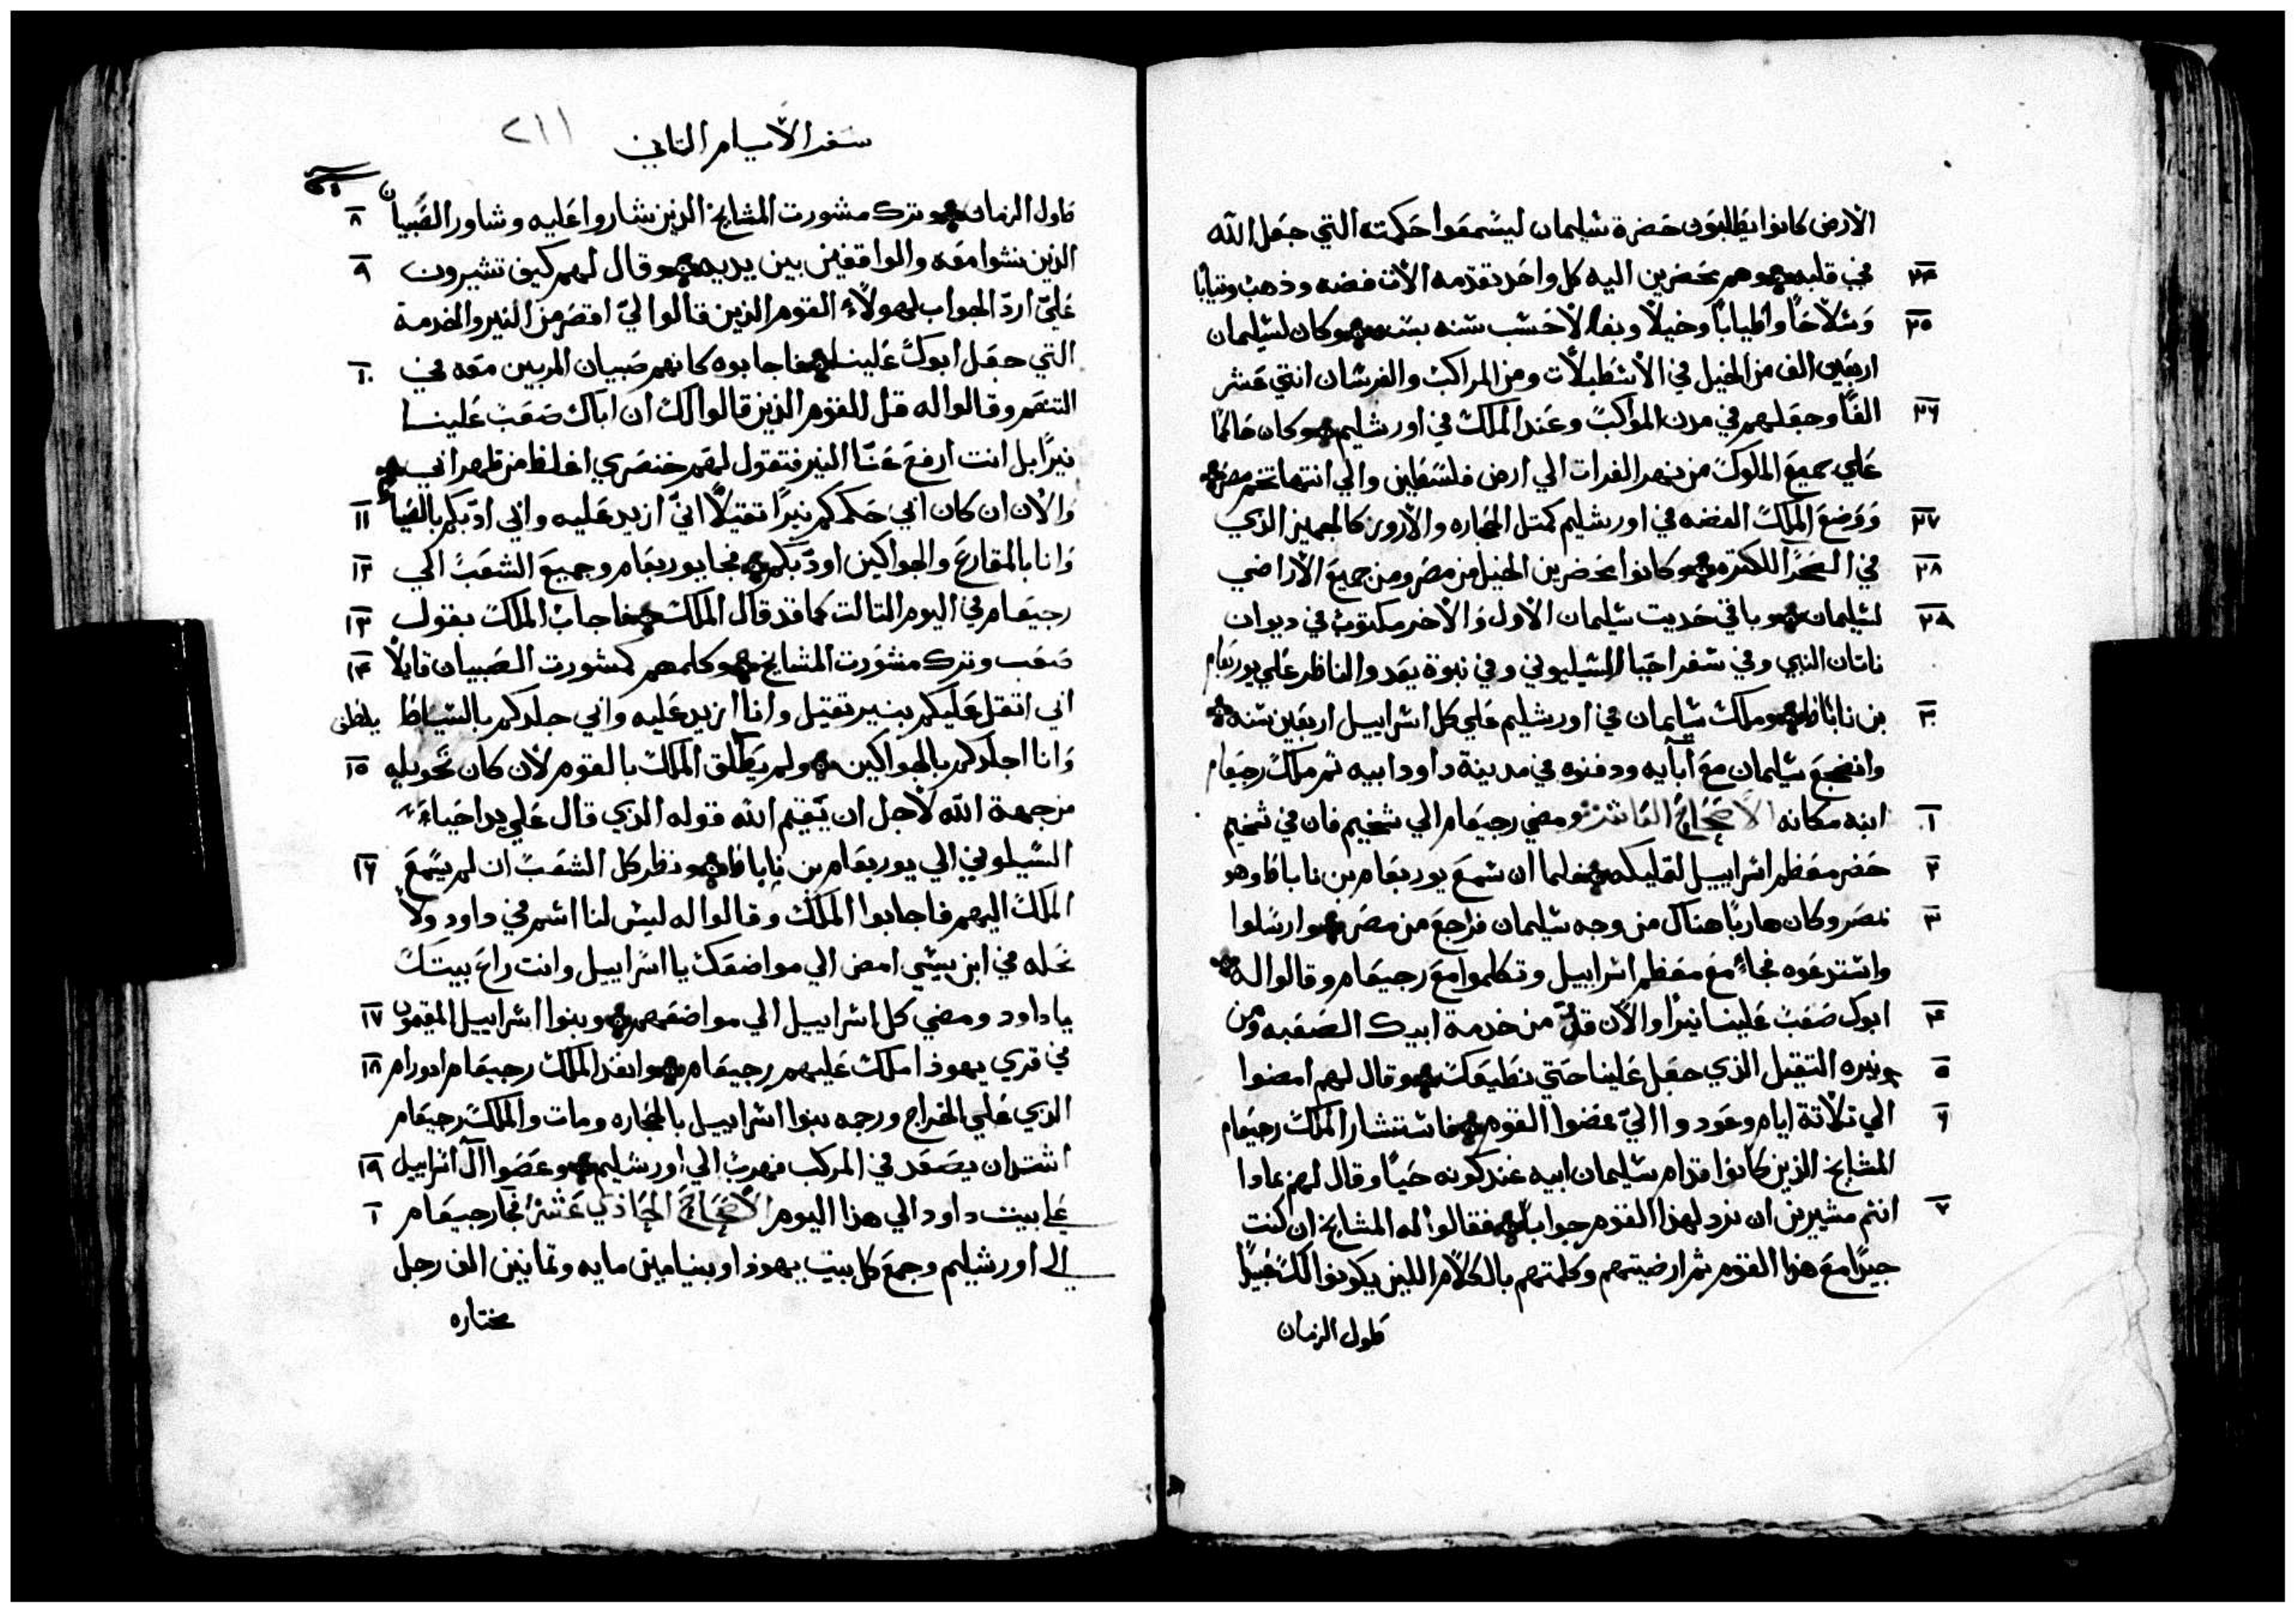 الارض كانوا يطلبون حضرة سليمان ليسمعوا حكمته التي جعل الله
٢٤ في قلبه وهم يحضرين اليه كل واحد تقدمه الات فضه وذهب وتيابا
٢٥ وسلاحا واطيابا وخيلا وبغالا حسب سنه بسنه وكان لسليمان
اربعين الف من الخيل في الاسطبلات ومن المراكب والفرسان اتني عشر
٢٦ الفا وجعلهم في مدن المواكب وعند الملك في اورشليم وكان حاكما
علي جميع الملوك من نهر الفرات الي ارض فلسطين والي انتها تخم مصر
٢٧ ووضع الملك الفضه في اورشليم كمتل الحجاره والارون كالجميز الذي
٢٨ في الصحرا اللكتره وكانوا يحضرين الخيل من مصر ومن جميع الاراضي
٢٩ لسليمان وباقي حديت سليمان الاول والاخر مكتوب في ديوان
ناتان النبي وفي سفر احيا الشيليوني وفي نبوة يعدو الناظر علي يوربعام
٣٠ بن ناباط وملك سليمان في اورشليم علي كل اسراييل اربعين سنه
وانضجع سليمان مع ابايه ودفنوه في مدينة داود ابيه تم ملك رجبعام
١ ابنه مكانه الاصحاح العاشر ومضي رجبعام الي شخيم فان في شخيم
٢ حضر معظم اسراييل لتمليكه فلما ان سمع يوربعام بن ناباط وهو
٣ بمصر وكان هاربا هناك من وجه سليمان فراجع من مصر وارسلوا
واستدعوه فجاء مع معظم اسراييل وتكلموا مع رجبعام وقالوا له
٤ ابوك صعب علينا نيرا والان قلل من خدمة ابيك الصعبه ومن
٥ نيره التقيل الذي جعل علينا حتي نطيعك وقال لهم امضوا
٦ الي تلاتة ايام وعودوا الي فمضوا القوم فاستشار الملك رجبعام
المشايخ الذين كانوا قدام سليمان ابيه عند كونه حيا وقال لهم بمادا
٧ انتم مشيرين ان نرد لهذا القوم جوابا فقالوا له المشايخ ان كنت
جيدا مع هذا القوم تم ارضيتهم وكلمتهم بالكلام اللين يكونوا لك عبيدا
طول الزمان
سفر الايام التاني ٢١١
طول الزمان وترك مشورت المشايخ الذين شاروا عليه وشاور الصبيان ٨
الذين نشوا معه والواقفين بين يديه وقال لهم كيف تشيرون ٩
علي ارد الجواب لهولاء القوم الذين قالوا لي اقصر من النير والخدمة
التي جعل ابوك علينا فاجابوه كانهم صبيان المربيين معه في ١٠
التنعم وقالوا له قل للقوم الذين قالوا لك ان اباك صعب علينا
نيرا بل انت ارفع عنا النير فتقول لهم خنصري اغلظ من ظهر ابي
والان ان كان ابي حكمكم نيرا تقيلا اني ازيد عليه وابي ادبكم بالعصا ١١
وانا بالمقارع والجواكين اودبكم فجا يوربعام وجميع الشعب الي ١٢
رجبعام في اليوم التالت كما قد قال الملك فاجاب الملك بقول ١٣
صعب وترك مشورت المشايخ وكلمهم كمشورت الصبيان قايلا ١٤
ابي اتقل عليكم بنير تقيل وانا ازيد عليه وابي جلدكم بالسياط
وانا اجلدكم بالهواكين ولم يطلق الملك بالقوم لان كان تحويله ١٥
من جهة الله لاجل ان يقيم الله قوله الذي قال علي يد احياء
السيلوني الي يوربعام بن ناباط ونظر كل الشعب ان لم يسمع ١٦
الملك اليهم فاجابوا الملك وقالوا له ليس لنا اسم في داود ولا
نحله في ابن يسي امض الي مواضعك يا اسراييل وانت راع بيتك
يا داود ومضي كل اسراييل الي مواضعهم وبنوا اسراييل المقيمون ١٧
في قري يهوذا ملك عليهم رجبعام وانفذ الملك رجبعام ادورام ١٨
الذي علي الخراج ورجمه بنوا اسراييل بالحجاره ومات والملك رجبعام
اشتد ان يصعد في المركب فهرب الي اورشليم وعصوا ال اسراييل ١٩
علي بيت داود الي هذا اليوم الاصحاح الحادي عشر فجا رجبعام ١
الي اورشليم وجمع كل بيت يهوذا وبنيامين مايه وتمانين الف رجل
مختاره